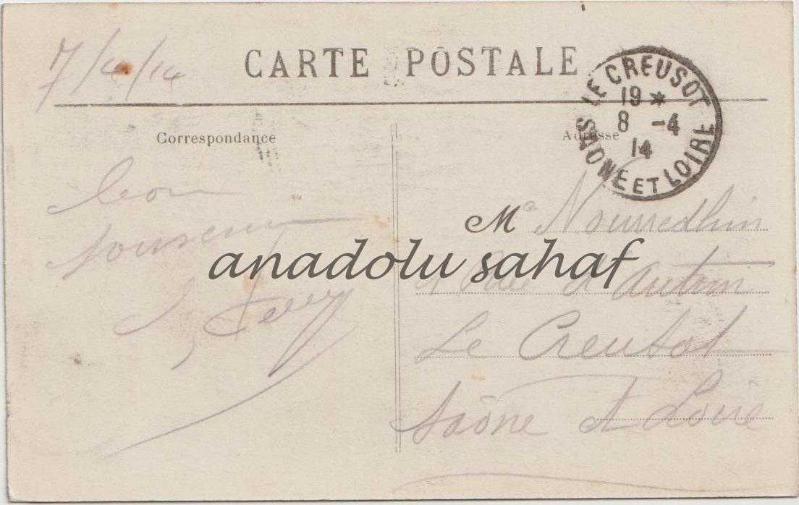 7/4/14
CARTE POSTALE
LE CREUSOT
19 *
8 -4
14
SAONE ET LOIRE
Correspondance
Adresse
bon
souvenir
Mr Nourredhin
Rue d'Autun
Le Creusot
Saône et Loire
anadolu sahaf